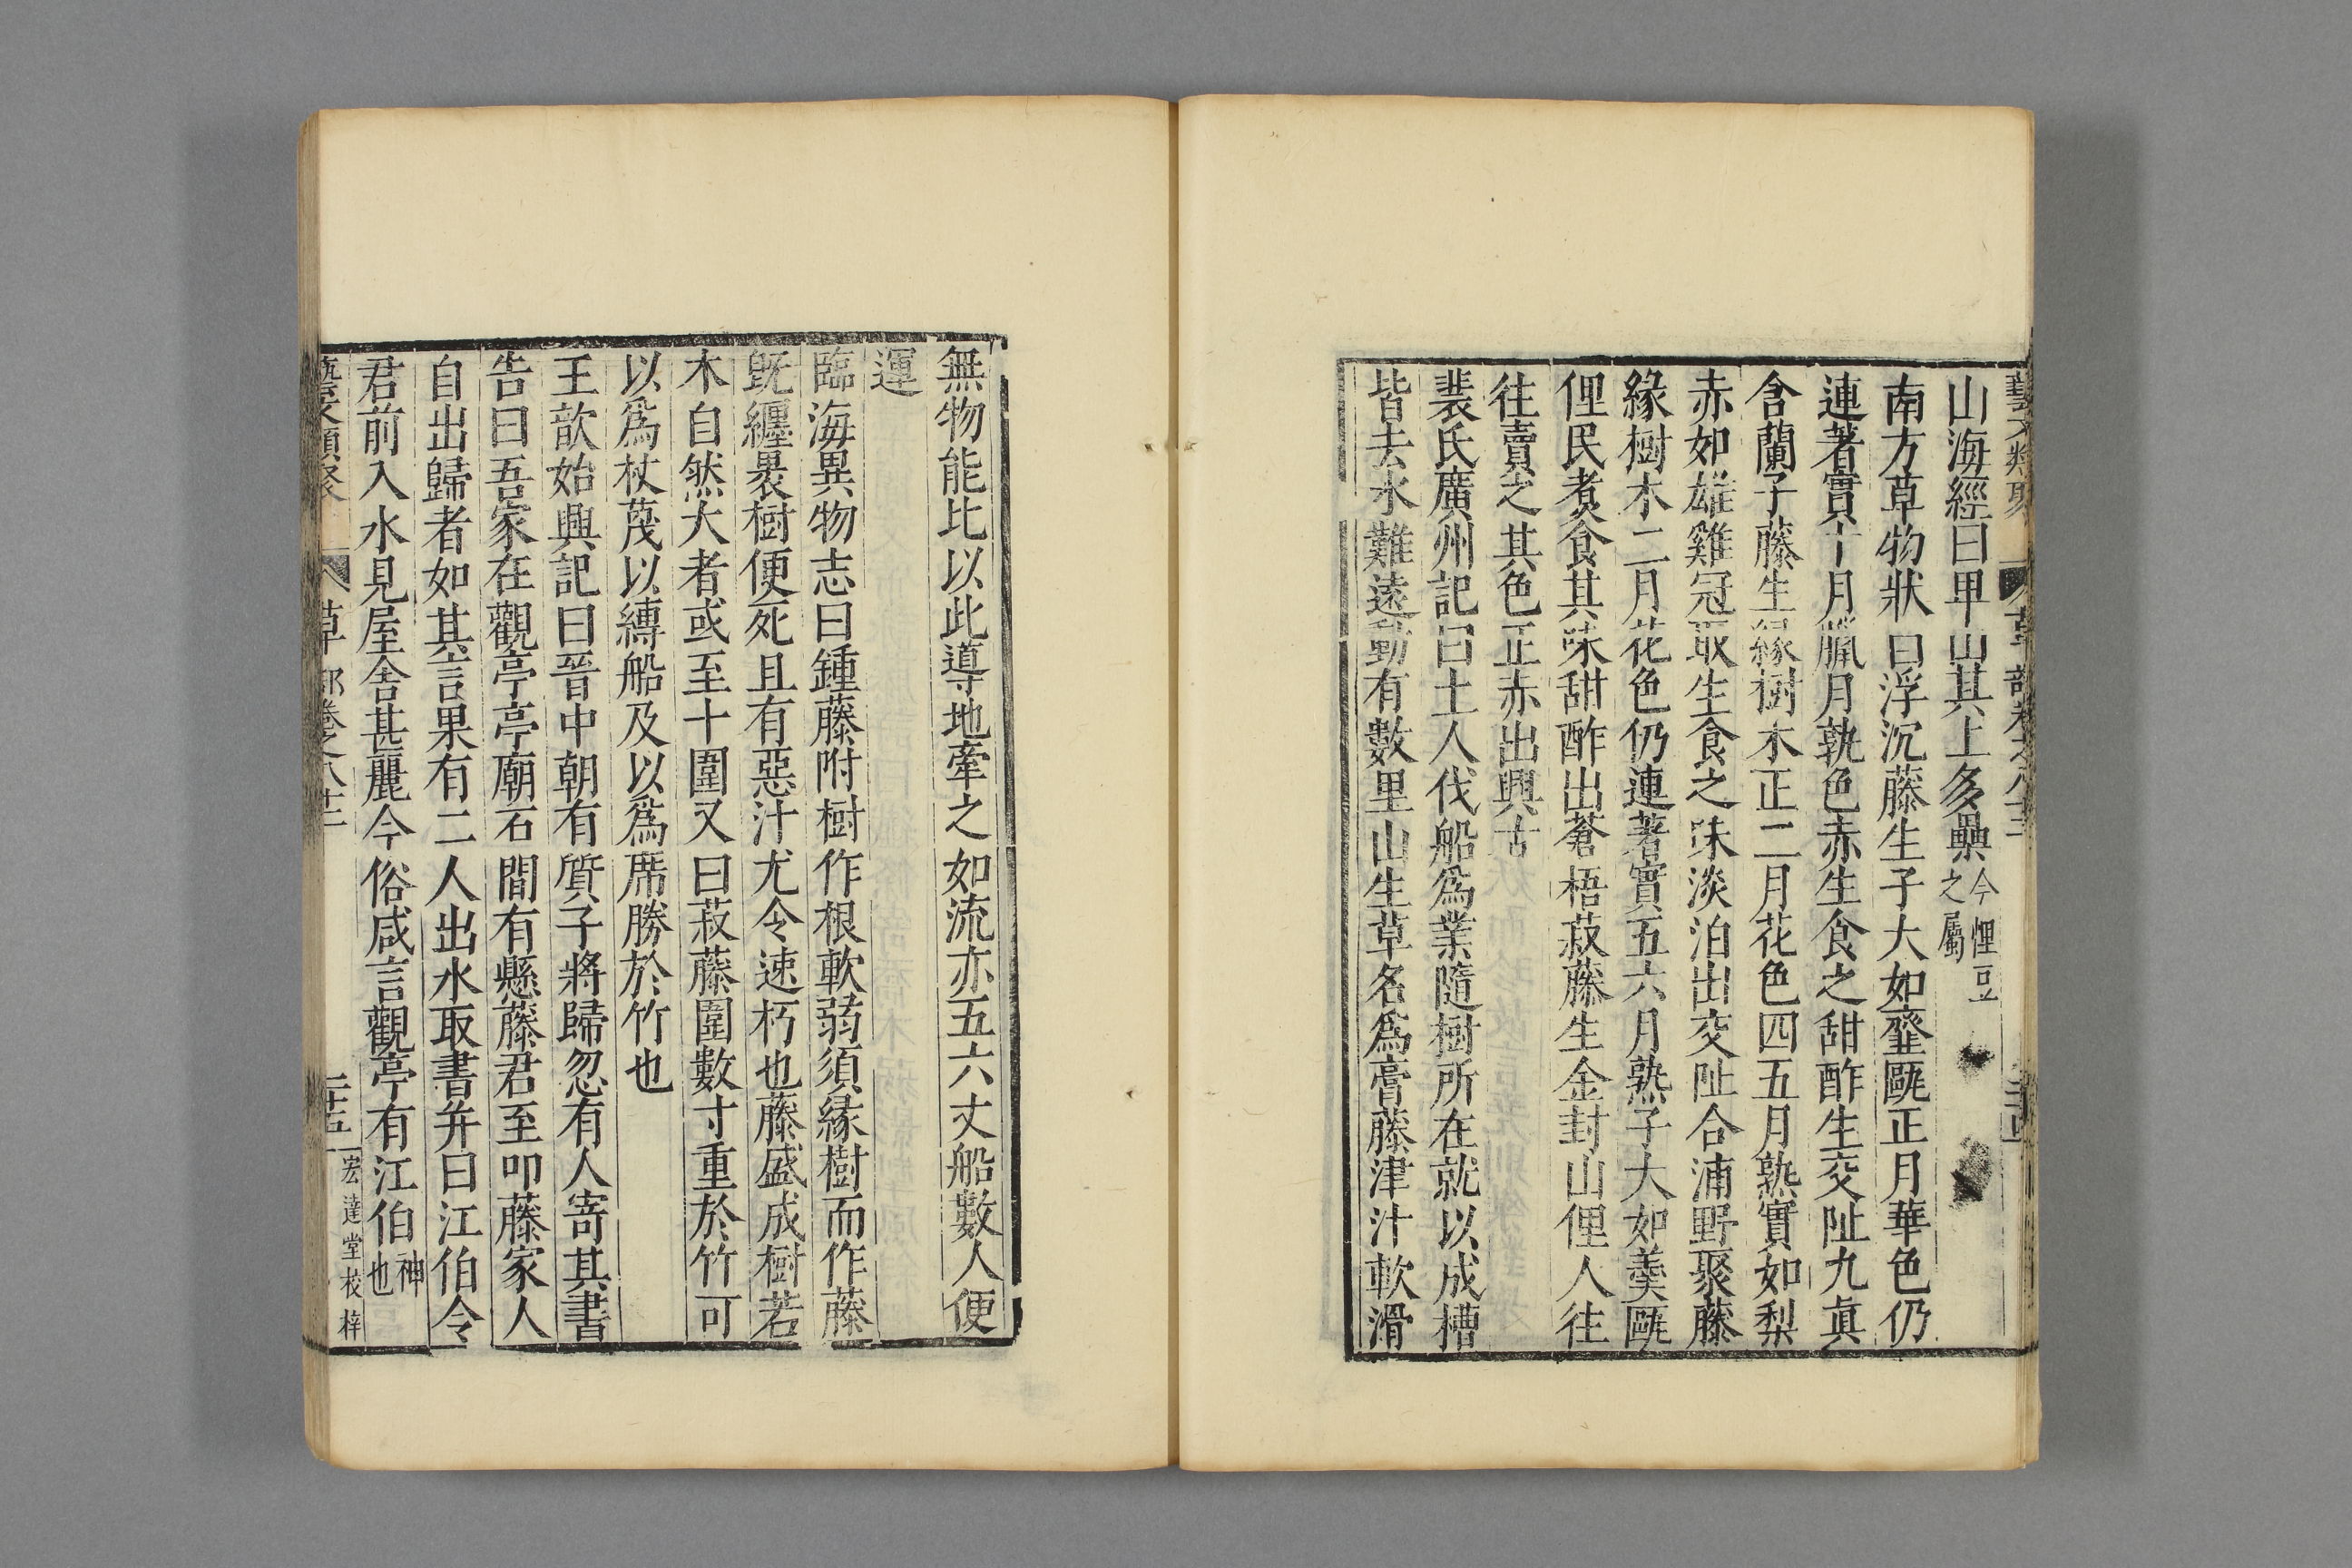 山海經曰甲山其上多櫐今狸豆之屬
南方草物狀曰浮沉藤生子大如韲甌正月華色仍
連著實十月臘月孰色赤生食之甜酢生交阯九眞
含蘭子藤生緣樹木正二月花色四五月熟實如梨
赤如雄雞冠取生食之味淡泊出交阯合浦野聚藤
緣樹木二月花色仍連著實五六月熟子大如羹甌
俚民煮食其味甜酢出蒼梧菽藤生金封山俚人往
往賣之其色正赤出興古
裴氏廣州記曰土人伐船爲業隨樹所在就以成槽
皆去水難遠動有數里山生草名爲膏藤津汁軟滑
無物能比以此導地牽之如流亦五六丈船數人便
運
臨海異物志曰鍾藤附樹作根軟弱須緣樹而作藤
旣纏裹樹便死且有惡汁尤令速朽也藤盛成樹若
木自然大者或至十圍又曰菽藤圍數寸重於竹可
以爲杖蔑以縛船及以爲席勝於竹也
王歆始興記曰晉中朝有質子將歸忽有人寄其書
告曰吾家在觀亭亭廟石間有懸藤君至叩藤家人
自出歸者如其言果有二人出水取書并曰江伯令
君前入水見屋舍甚麗今俗咸言觀亭有江伯神也
藝文類聚 草部卷之八十二 二十五 宏達堂校梓